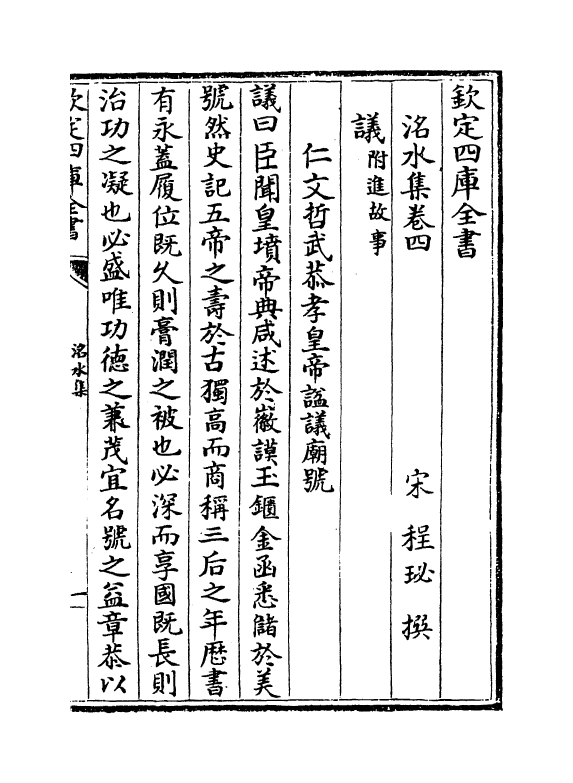 欽定四庫全書
洺水集卷四
宋 程珌 撰
議附進故事
仁文哲武恭孝皇帝諡議廟號
議曰臣聞皇墳帝典咸述於徽謨玉鏂金函悉儲於美
號然史記五帝之壽於古獨高而商稱三后之年歴書
有永蓋履位既久則膏潤之被也必深而享國既長則
治功之凝也必盛唯功徳之兼茂宜名號之益章恭以
欽定四庫全書
洺水集
一